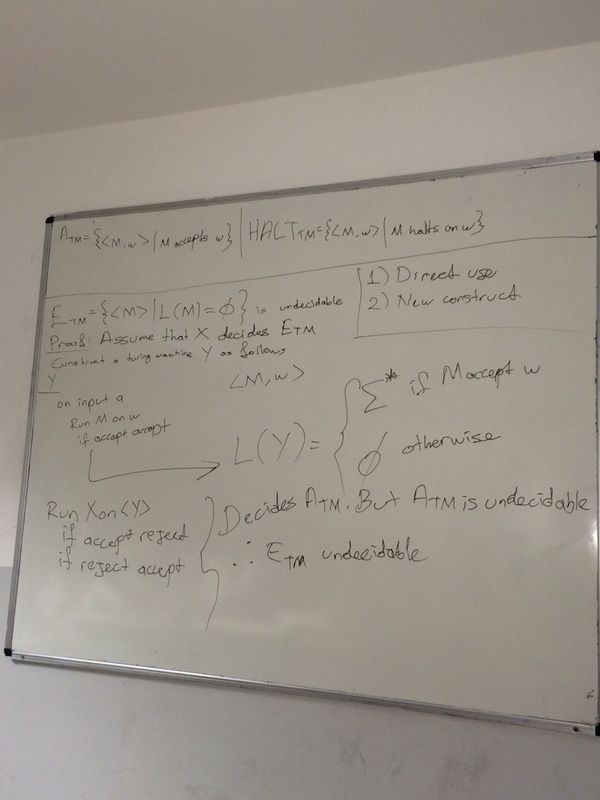 A_TM = {<M, w> | M accepts w} | HALT_TM = {<M, w> | M halts on w}
1) Direct use
2) New construct
E_TM = {<M> | L(M) = ∅} is undecidable
Proof: Assume that X decides E_TM
Construct a turing machine Y as follows
Y
<M, w>
on input a
Run M on w
if accept accept
L(Y) = { Σ* if M accept w
∅ otherwise
Run X on <Y>
if accept reject
if reject accept
} Decides A_TM. But A_TM is undecidable
∴ E_TM undecidable